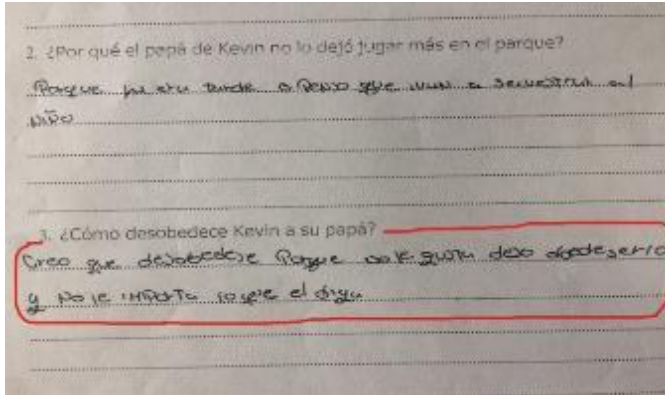 2. ¿Por qué el papá de Kevin no lo dejó jugar más en el parque?
Porque ya era tarde o Penso que ivan a secuestrar al
niño
3. ¿Cómo desobedece Kevin a su papá?
Creo que desobedece Porque no le gusta
y No le importa lo que el diga